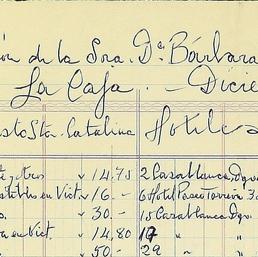 ón de la Sra. Dª. Bárbara
La Caja. — Dicie
sto Sta. Catalina Hoteles
y otros " 14.75 2 Casablanca Dqv
stibles en Vict " 16 - 6 Hotel Paseo Torreiro 3
" 30 - 15 Casablanca Dqv
a en Vict. " 14.80 19 "
" 50 - 29 " "